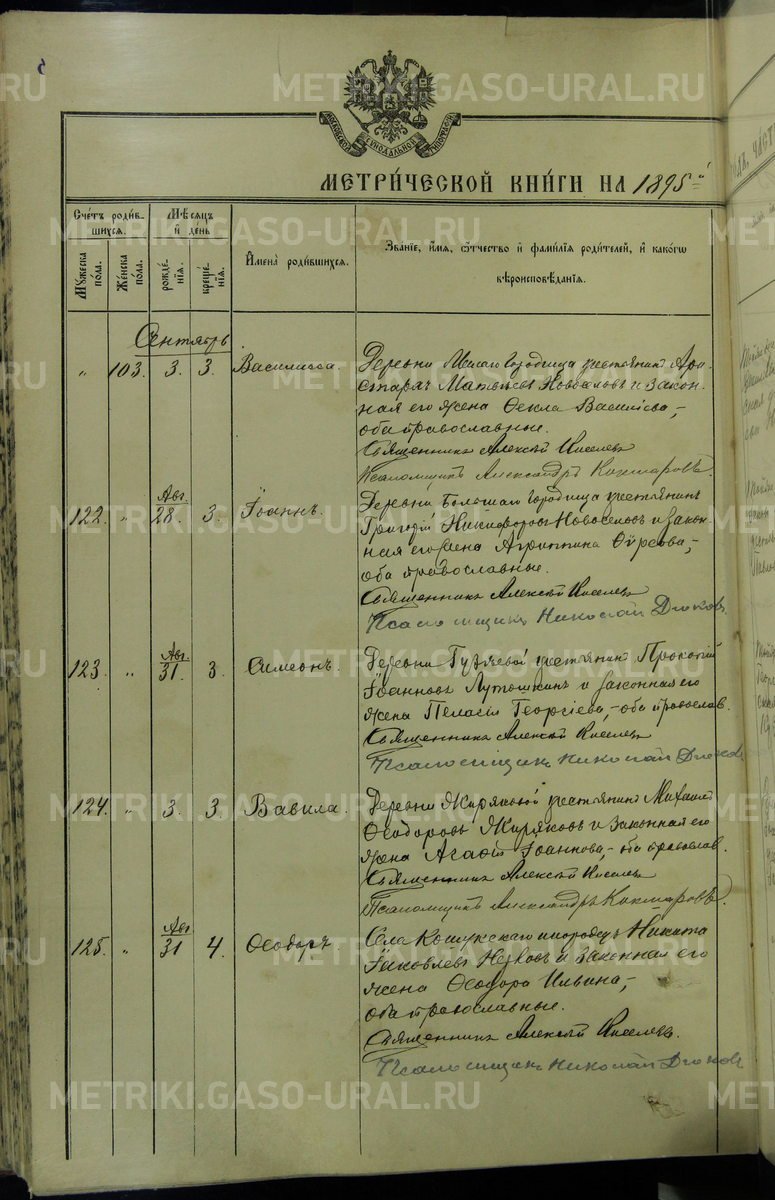 МЕТРИ́ЧЕСКОЙ КНИ́ГИ НА 1895-й
Сче́тъ роди́в-
шихся.
Мѣ́сяцъ
и҆ де́нь
Мꙋ́жеска
по́ла.
Же́нска
по́ла.
рожде́-
нїѧ.
креще́-
нїѧ.
И҆мена̀ роди́вшихся.
Зва́нїе, и҆́мѧ, ѻ҆́тчество и҆ фами́лїѧ роди́телей, и҆ како́гѡ
вѣроисповѣ́данїѧ.
Сентябрь
„ 103. 3. 3. Василисса. Деревни Малаго Городища крестьянинъ Ари-
стархъ Матвѣевъ Новоселовъ и закон-
ная его жена Ѳекла Василіева,-
оба православные.
Священникъ Алексѣй Киселевъ
Псаломщикъ Александръ
122. „ Авг. 28. 3. Іоаннъ. Деревни Большаго Городища крестьянинъ
Григорій Никифоровъ Новоселовъ и закон-
ная его жена Агриппина Ѳирсова,-
оба православные.
Священникъ Алексѣй Киселевъ
Псаломщикъ Николай Дьяковъ
123. „ Авг. 31. 3. Симеонъ. Деревни крестьянинъ Прокопій
Іоанновъ Лутошкинъ и законная его
жена Пелагія Георгіева,- оба православ.
Священникъ Алексѣй Киселевъ
Псаломщикъ Николай Дьяковъ
124. „ 3. 3. Вавила. Деревни Жиряковой крестьянинъ Михаилъ
Ѳеодоровъ Жиряковъ и законная его
жена Агафія Іоаннова,- оба православ.
Священникъ Алексѣй Киселевъ
Псаломщикъ Александръ
125. „ Авг. 31 4. Ѳеодоръ. Села Кошукскаго инородецъ Никита
Іаковлевъ и законная его
жена Ѳеодора Ильина,-
оба православные.
Священникъ Алексѣй Киселевъ.
Псаломщикъ Николай Дьяковъ
METRIKI.GASO-URAL.RU